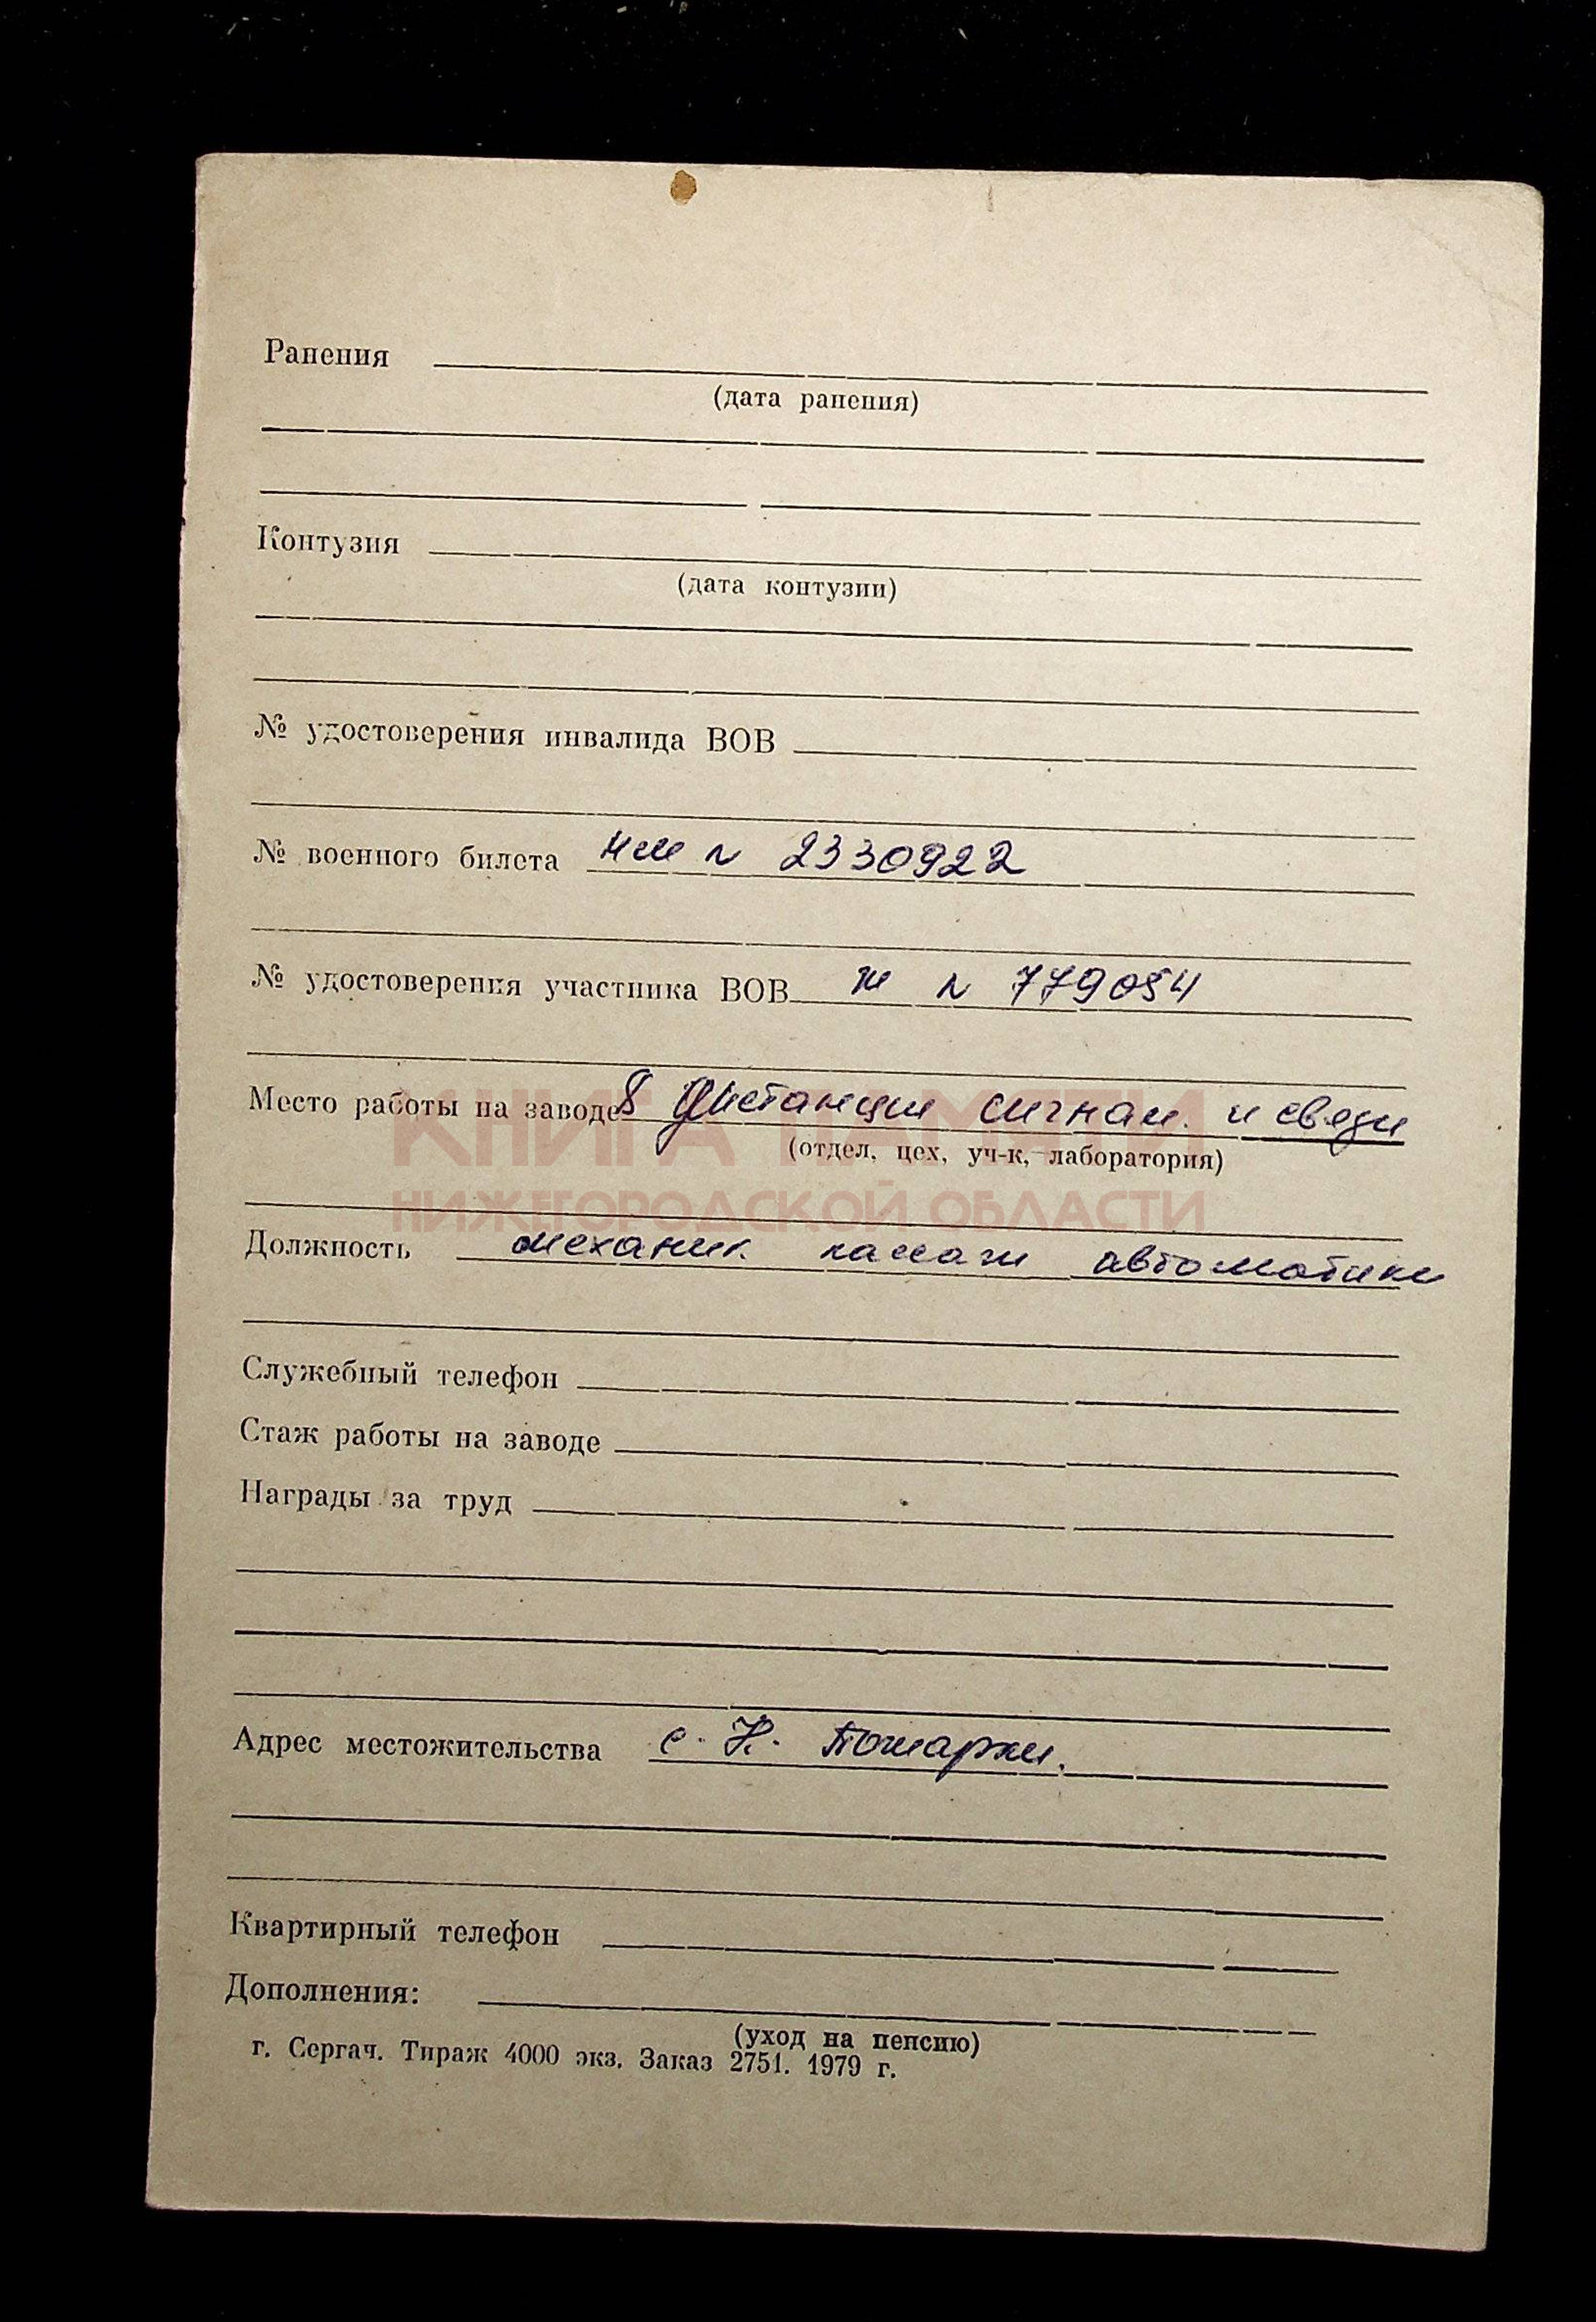 Ранения
(дата ранения)
Контузия
(дата контузии)
№ удостоверения инвалида ВОВ
№ военного билета № 2330922
№ удостоверения участника ВОВ № 779054
Место работы на заводе 8 Дистанции сигнал. и связи
(отдел, цех, уч-к, лаборатория)
КНИГА ПАМЯТИ
НИЖЕГОРОДСКОЙ ОБЛАСТИ
Должность механик автоматики
Служебный телефон
Стаж работы на заводе
Награды за труд
Адрес местожительства с. Н. Пожарки.
Квартирный телефон
Дополнения:
(уход на пенсию)
г. Сергач. Тираж 4000 экз. Заказ 2751. 1979 г.